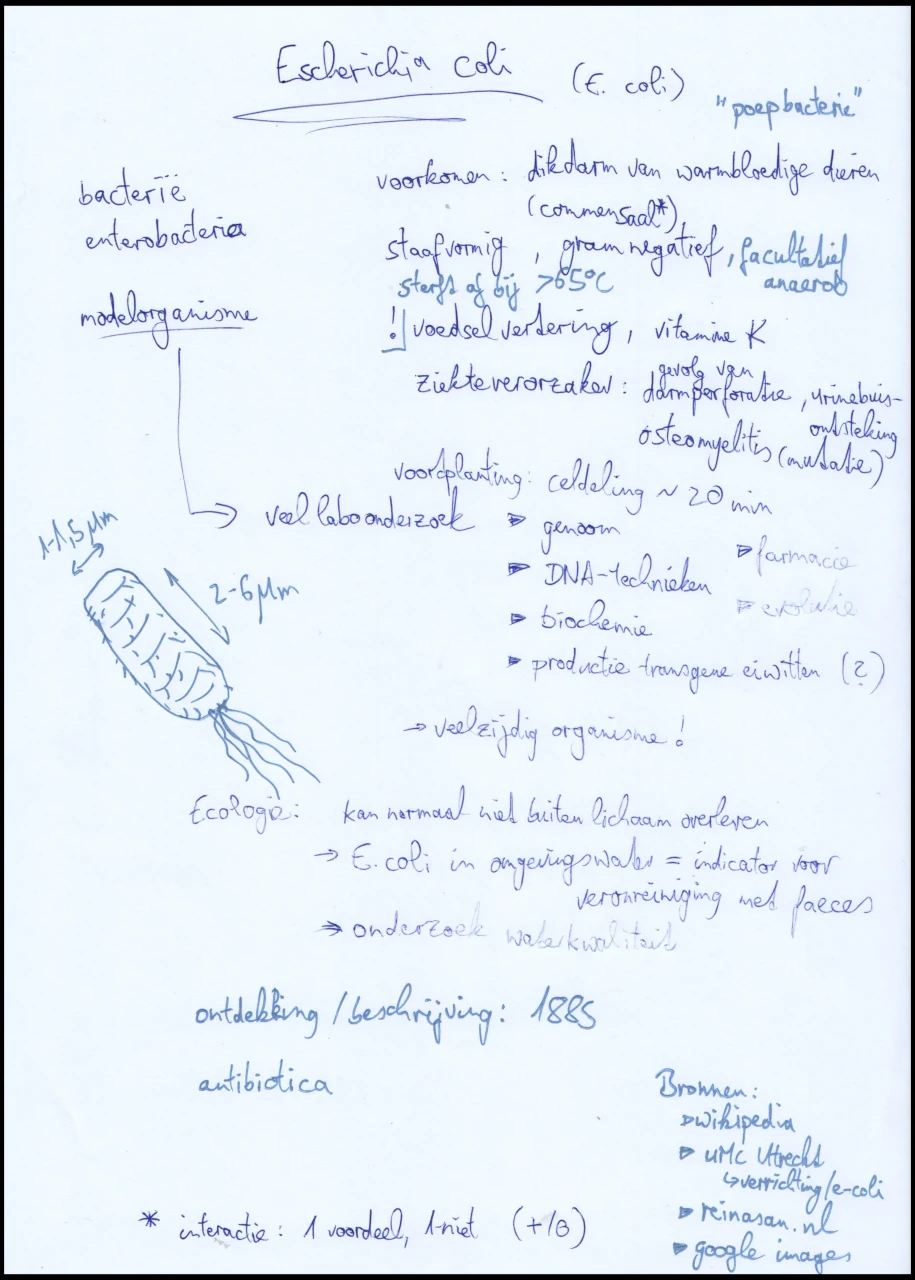 Escherichia coli (E. coli)
"poepbacterie"
bacterië
enterobacteria
modelorganisme
voorkomen: dikdarm van warmbloedige dieren
(commensaal*),
staafvormig, gram negatief, facultatief
anaerob
sterft af bij >65°C
! voedselvertering, vitamine K
ziekteverorzaker: gevolg van
darmperforatie, urinebuis-
ontsteking
osteomyelitis (mutatie)
voortplanting: celdeling ~ 20 min
veel labo onderzoek
▹ genoom
▹ DNA-technieken
▹ biochemie
▹ productie transgene eiwitten (?)
▹ farmacie
▹ evolutie
→ veelzijdig organisme!
1-1,5 µm
2-6 µm
Ecologie: kan normaal niet buiten lichaam overleven
→ E. coli in omgevingswater = indicator voor
veronreiniging met faeces
⇒ onderzoek waterkwaliteit
ontdekking/beschrijving: 1885
antibiotica
Bronnen:
▹ wikipedia
▹ UMC Utrecht
↳ verrichting/e-coli
▹ reinasan.nl
▹ google images
* interactie: 1 voordeel, 1 niet (+/0)